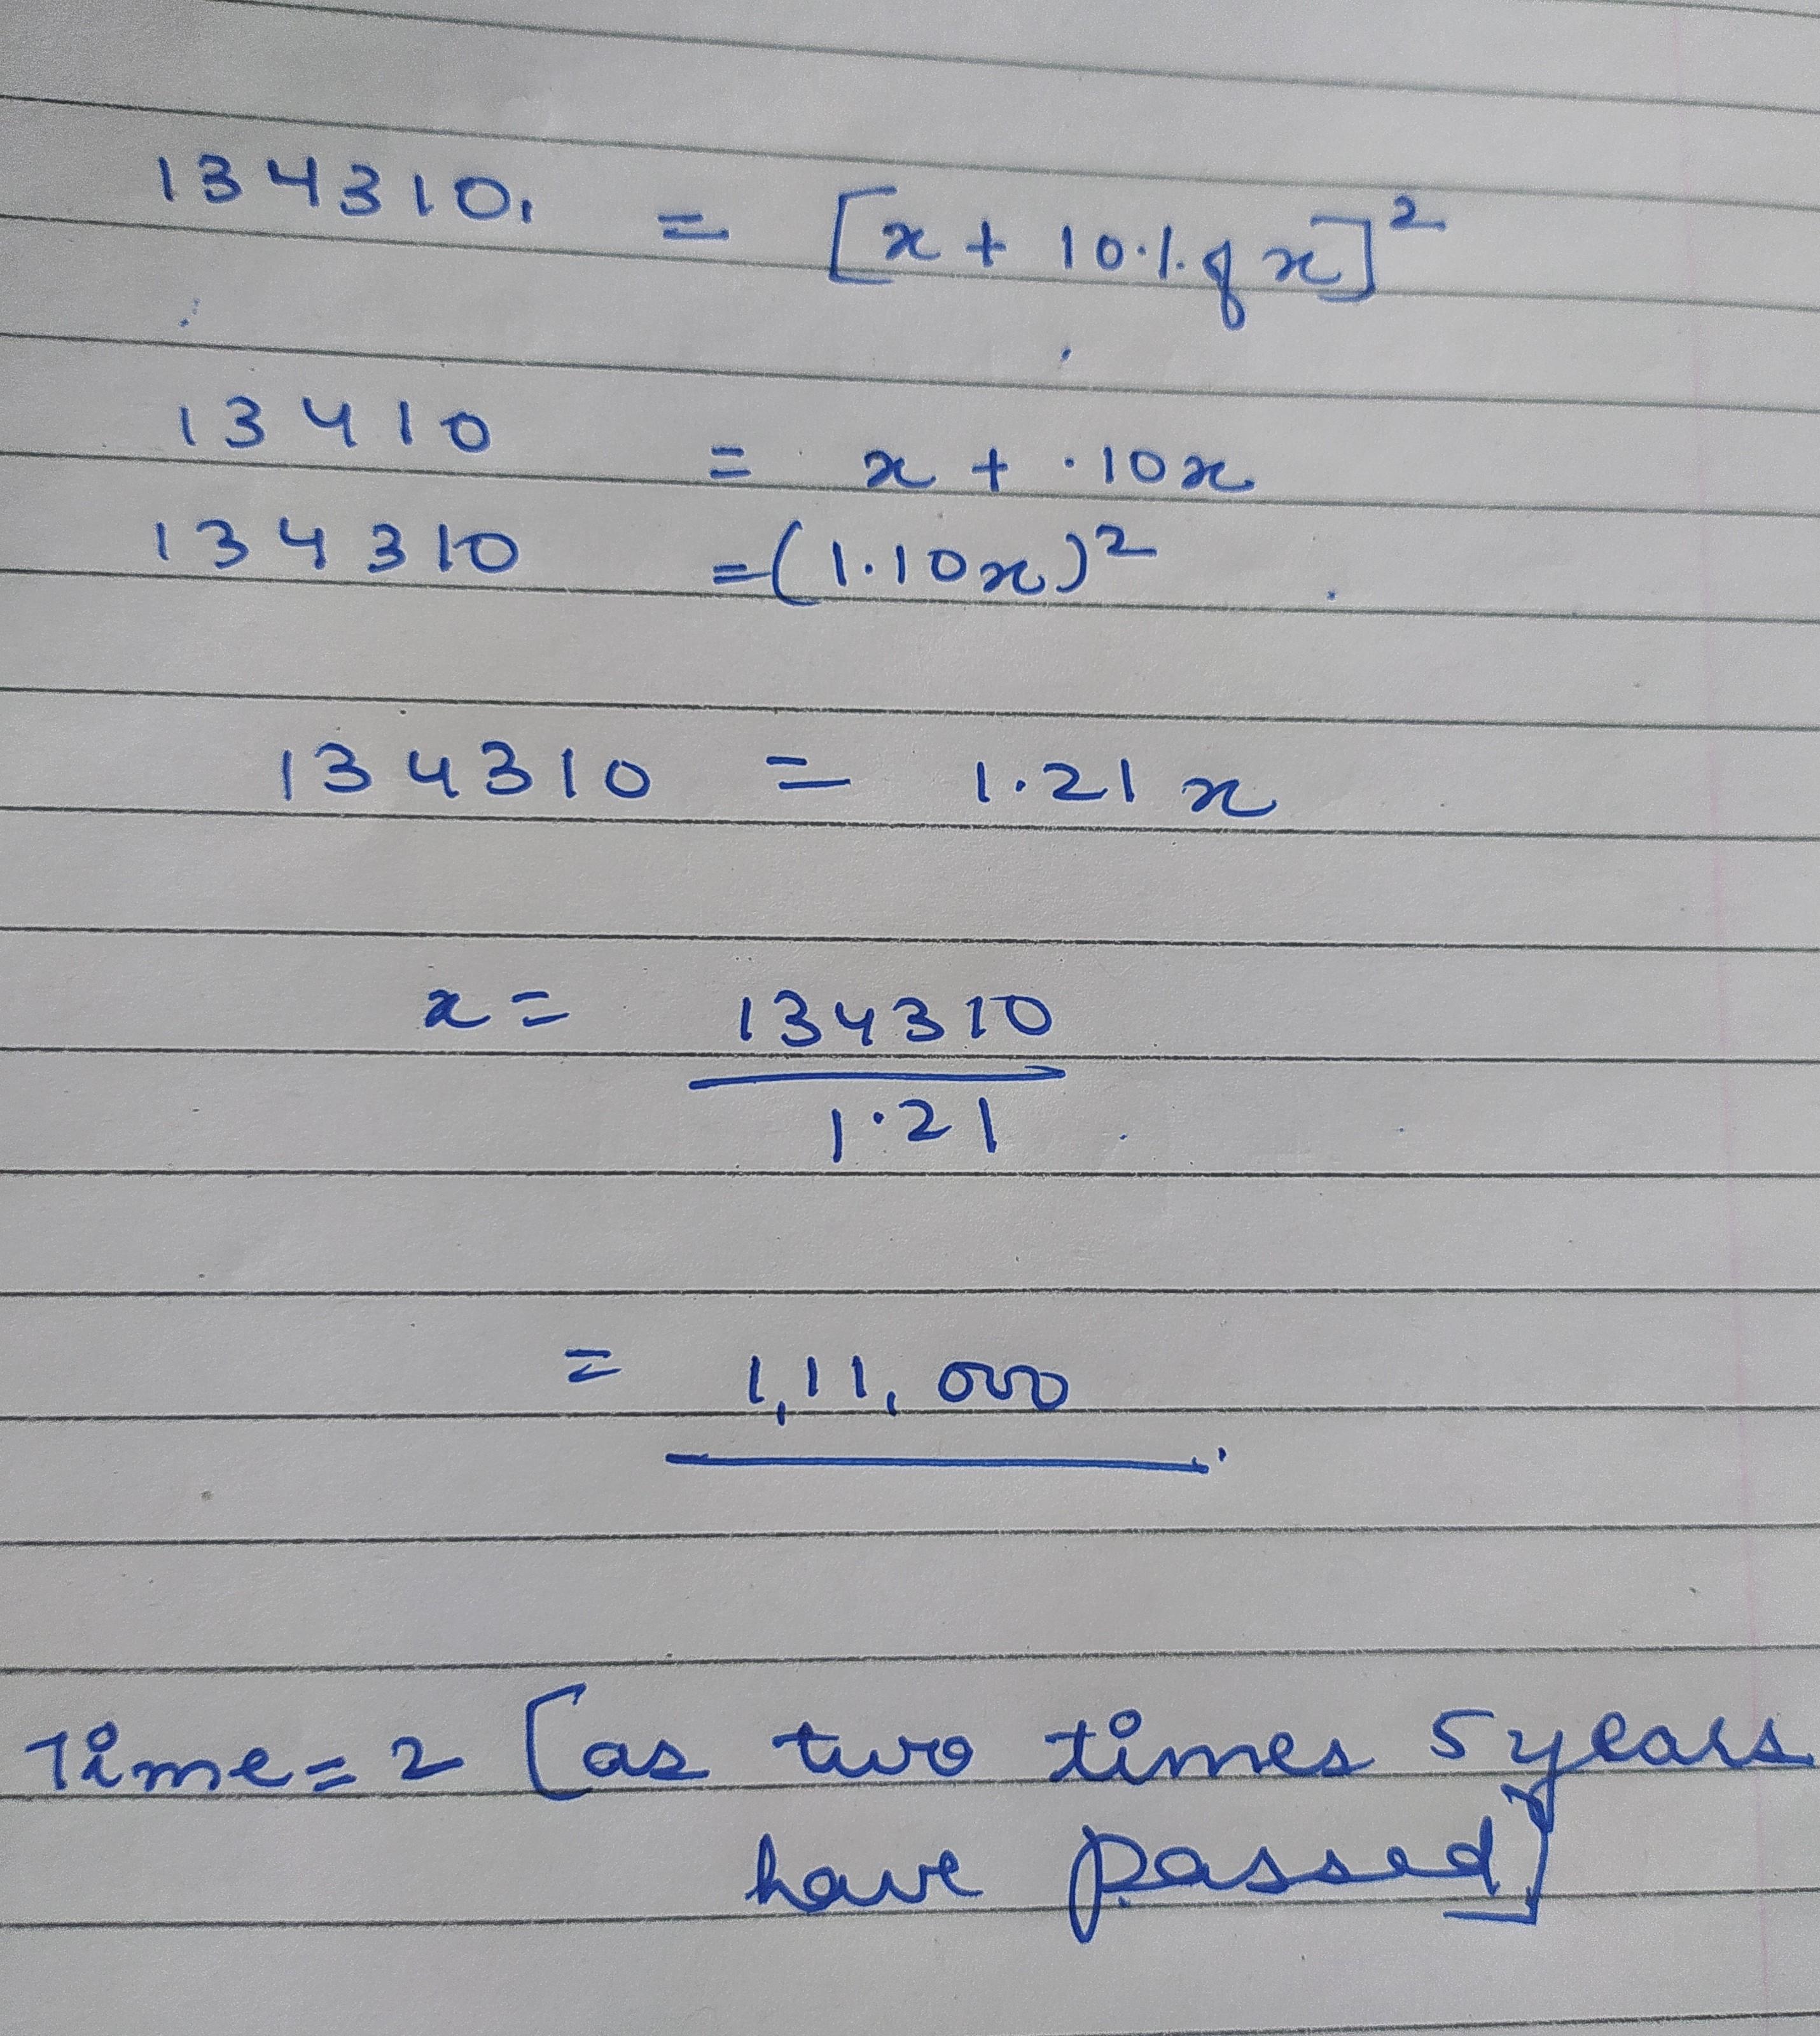 134310, = [x + 10% of x]²
13410 = x + .10x
134310 = (1.10x)²
134310 = 1.21x
x = 134310
1.21
= 1,11,000.
Time = 2 [as two times 5 years
have passed]